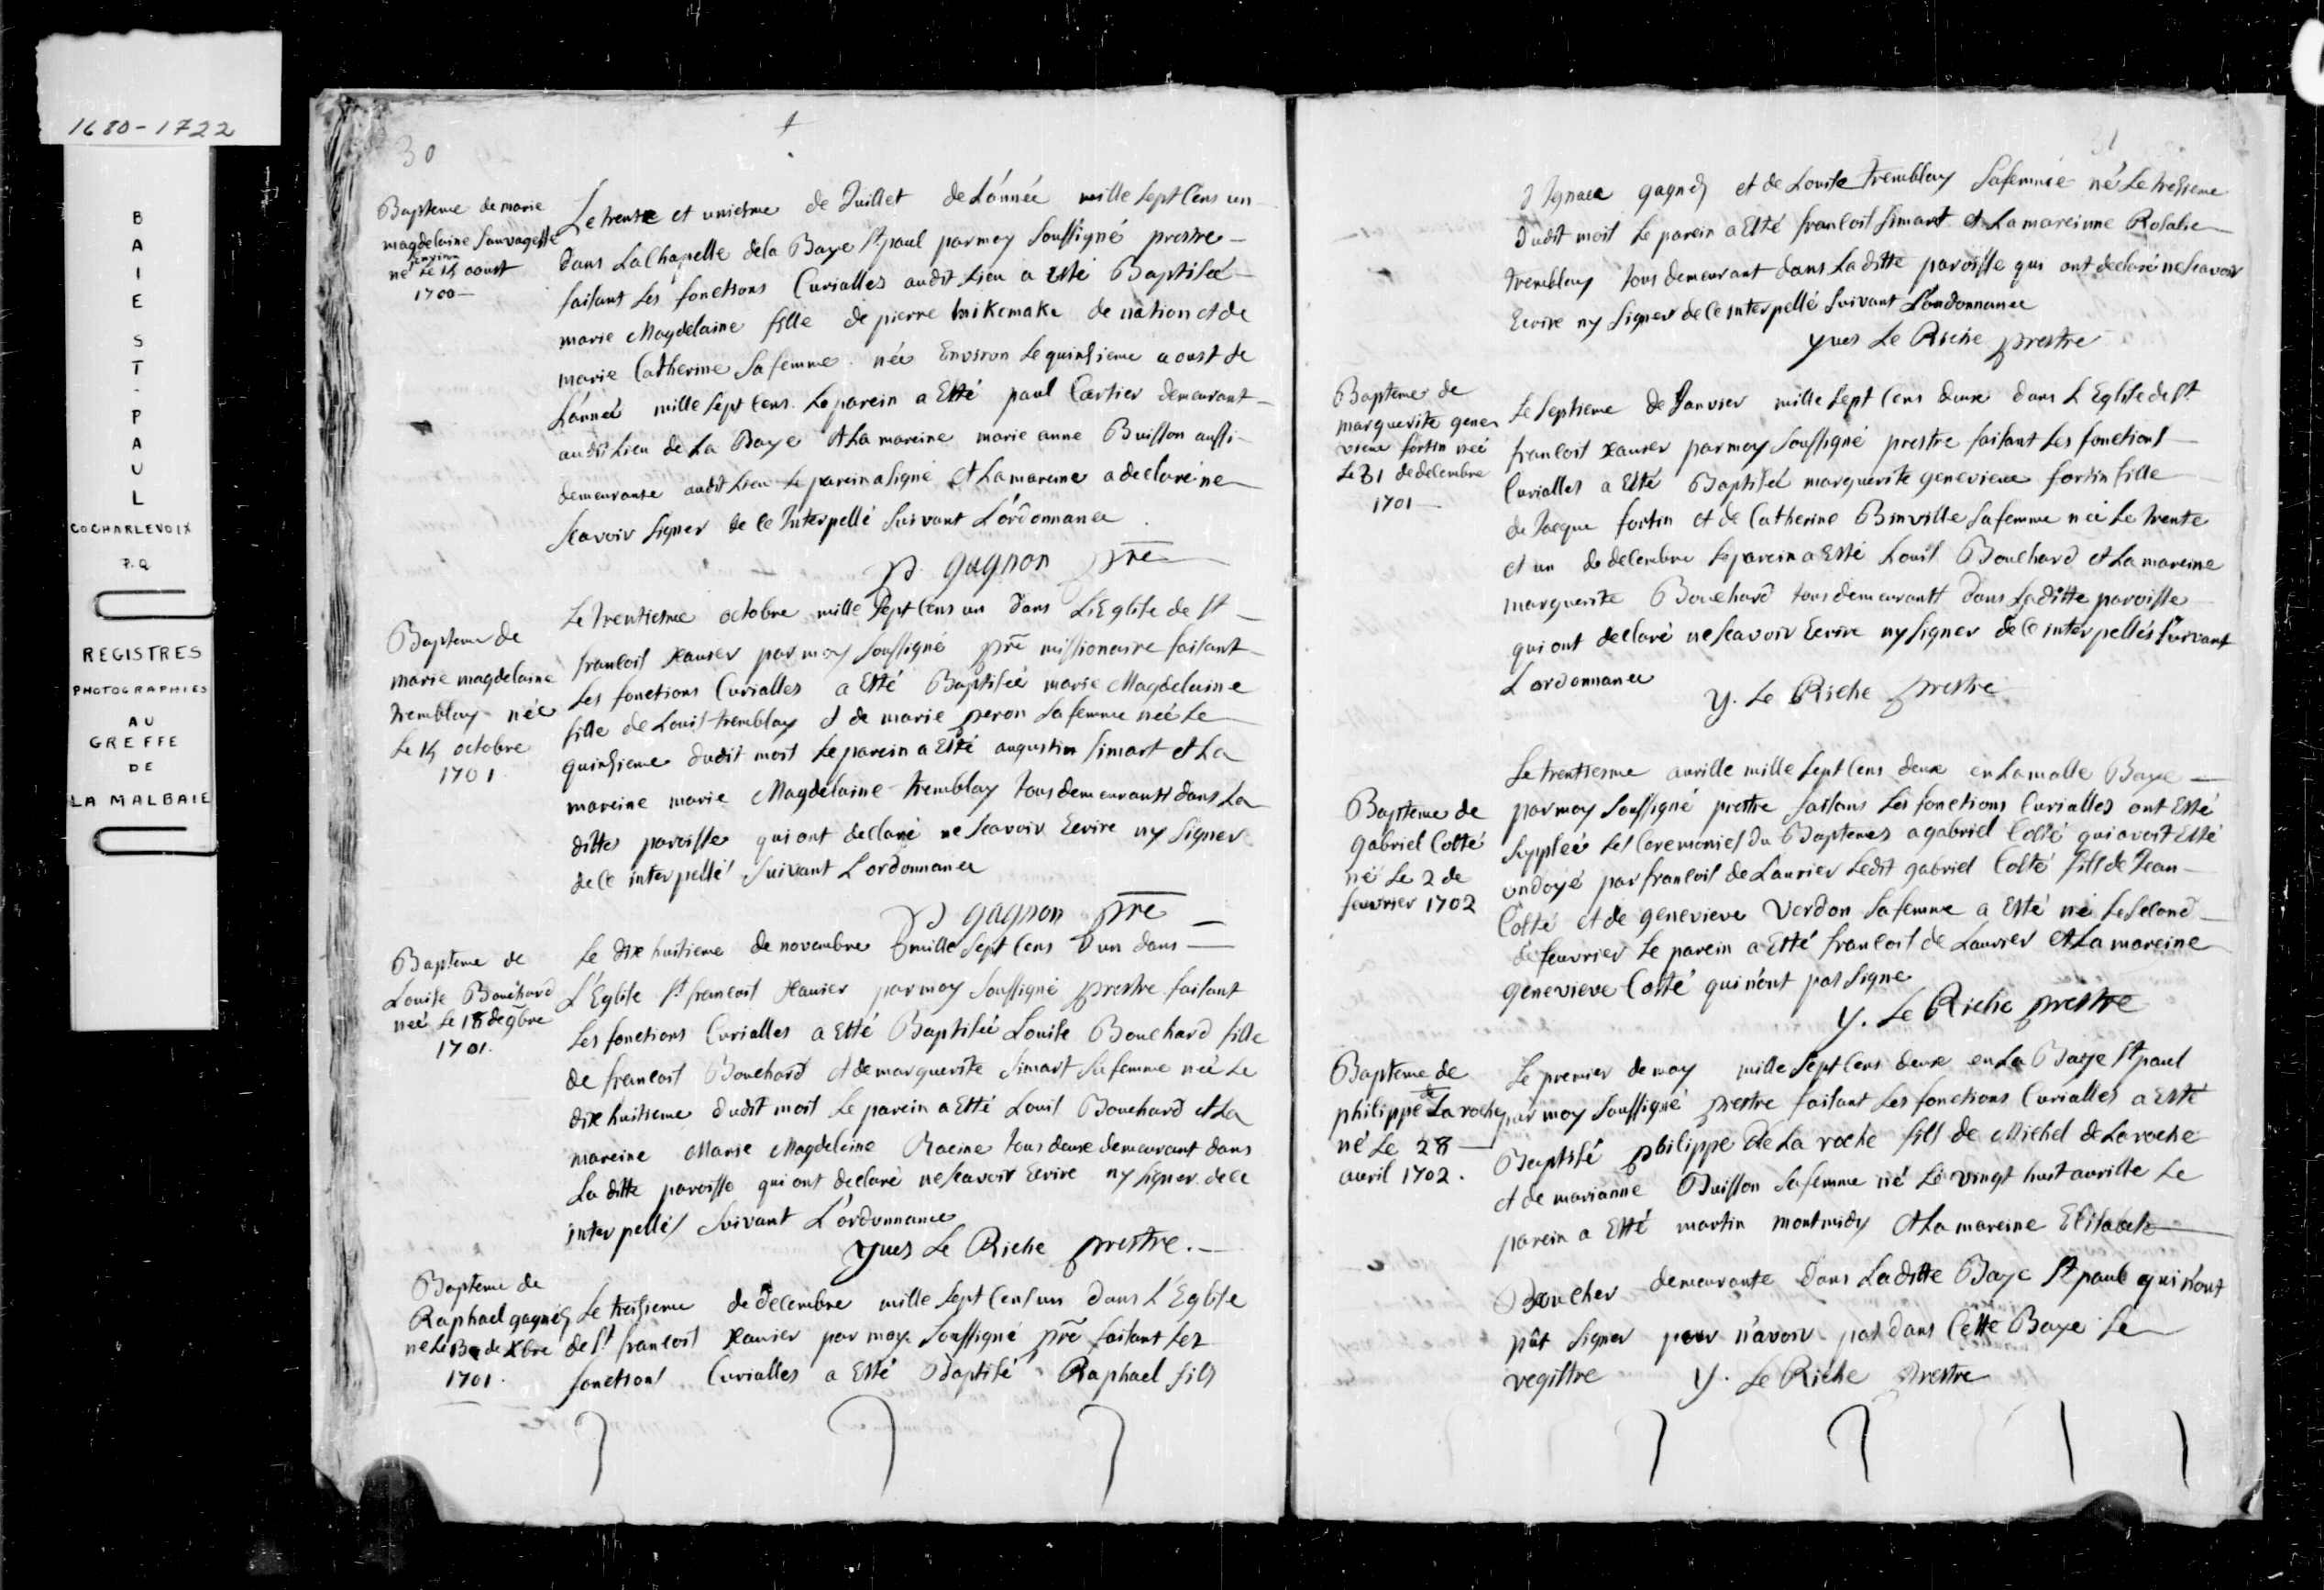 1680-1722
BAIE ST-PAUL
CO CHARLEVOIX
P.Q
REGISTRES
PHOTOGRAPHIES
AU
GREFFE
DE
LA MALBAIE
30
Bapteme de marie
magdelaine sauvagesse
environ
né le 15 aoust
1700
Le trente et uniesme de Juillet de L'année mille sept Cens un
dans La Chapelle de la Baye St paul par moy soussigné prestre
faisant Les fonctions Curialles audit Lieu a Esté Baptisée
marie Magdelaine fille de pierre mikemake de nation et de
marie Catherine sa femme née Environ Le quinsieme aoust de
L'année mille sept Cens Le parein a Etté paul Cartier demeurant
audit Lieu de La Baye et La mareine marie anne Buisson aussi
demeurante audit Lieu Le parein a signé et La mareine a declaré ne
scavoir signer de ce Interpellé suivant L'ordonnance
P. gagnon pre
Bapteme de
marie magdelaine
tremblay née
le 15 octobre
1701
Le trentiesme octobre mille sept Cens un dans L'Eglise de St
francois xauier par moy soussigné pre missionaire faisant
Les fonctions Curialles a Etté Baptisée marie Magdelaine
fille de Louis tremblay et de marie peron sa femme née Le
quinsieme dudit mois Le parein a Etté augustin simart et La
mareine marie Magdelaine tremblay tous demeurants dans La
ditte paroisse qui ont declaré ne scavoir Ecrire ny signer
de ce interpellé suivant L'ordonnance
P gagnon pre
Bapteme de
Louise Bouchard
neé le 18 de 9bre
1701.
Le dix huitieme de novembre mille sept Cens un dans
L'Eglise St francois Xauier par moy soussigné prestre faisant
Les fonctions Curialles a Etté Baptisée Louise Bouchard fille
de francois Bouchard et de marguerite simart sa femme née Le
dix huitieme dudit mois Le parein a Etté Louis Bouchard et La
mareine Marie Magdelaine Racine tous deux demeurant dans
La ditte paroisse qui ont declaré ne scavoir Ecrire ny signer de ce
interpellés suivant L'ordonnance
yues Le Riche prestre.
Bapteme de
Raphael gagné
né le 13 de Xbre
1701.
Le treisieme de decembre mille sept Cens un dans L'Eglise
de St francois xauier par moy soussigné pre faisant Les
fonctions Curialles a Etté Baptisé Raphael fils
31
d Ignace gagné et de Louise tremblay sa femme né Le treisieme
dudit mois Le parein a Etté francois simart et La mareinne Rosalie
tremblay tous demeurant dans La ditte paroisse qui ont declaré ne scavoir
Ecrire ny signer de ce interpellé suivant L'ordonnance
yues Le Riche prestre
Bapteme de
marguerite gene
vieue fortin neé
Le 31 de decembre
1701
Le septieme de Janvier mille sept Cens deux dans L Eglise de St
francois xauier par moy soussigné prestre faisant Les fonctions
Curialles a Etté Baptisée marguerite genevieue fortin fille
de Jacque fortin et de Catherine Binville sa femme née Le trente
et un de decembre Le parein a Etté Louis Bouchard et La mareine
marguerite Bouchard tous demeurants dans La ditte paroisse
qui ont declaré ne scavoir Ecrire ny signer de ce interpellés suivant
L ordonnance
y. Le Riche prestre
Bapteme de
Gabriel Cotté
né Le 2 de
feuvrier 1702
Le trentiesme aurille mille sept Cens deux en La malle Baye
par moy soussigné prestre faisans Les fonctions Curialles ont Etté
supplée Les Ceremonies du Baptemes a gabriel Cotté qui avoit Etté
ondoyé par francois de Laurier Ledit gabriel Cotté fils de Jean
Cotté et de genevieve Verdon sa femme a Etté né Le second
de feuvrier Le parein a Etté francois de Laurier et La mareine
genevieve Cotté qui n'ont pas signe
y. Le Riche prestre
Bapteme de
philippe de La roche
né Le 28
avril 1702.
Le premier de may mille sept Cens deux en La Baye St paul
par moy soussigné prestre faisant Les fonctions Curialles a Etté
Baptisé philippe de La roche fils de Michel de La roche
et de marianne Buisson sa femme né Le vingt huit aurille Le
parein a Etté martin montmidy et La mareine Elisabeth
Boucher demeurante dans La ditte Baye St paul qui n'ont
pût signer pour n'avoir pas dans Cette Baye Le
regittre
y. Le Riche prestre